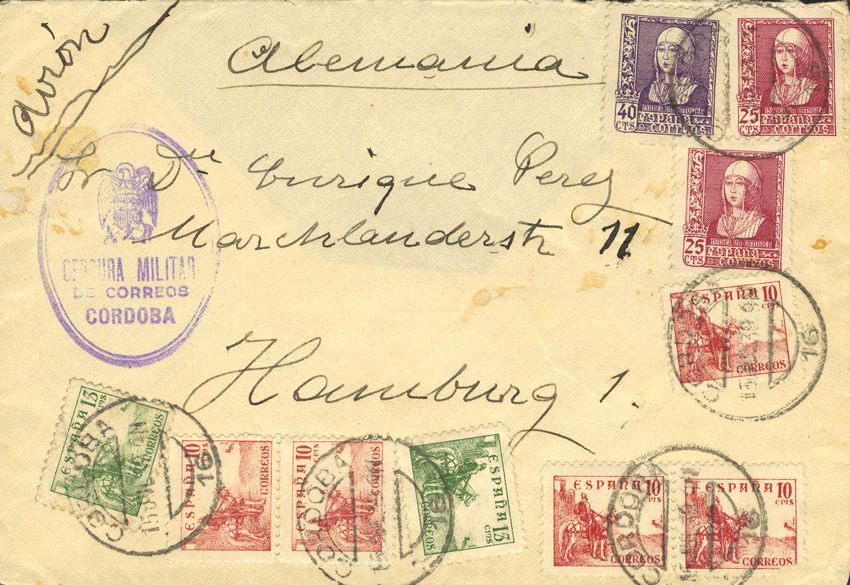 Avión
Alemania
Sr Dn Enrique Perez
Marcklanderstr 11
Hamburg 1.
CENSURA MILITAR
DE CORREOS
CORDOBA
40
CTS
ESPAÑA
CORREOS
ISABEL LA CATOLICA
25
CTS
ESPAÑA
CORREOS
ISABEL LA CATOLICA
25
CTS
ESPAÑA
CORREOS
ESPAÑA 10
CTS
CORREOS
16
ESPAÑA 15
CTS
CORREOS
CORDOBA
16
ESPAÑA 10
CTS
CORREOS
ESPAÑA 10
CTS
CORREOS
CORDOBA
16
ESPAÑA 15
CTS
CORREOS
ESPAÑA 10
CTS
CORREOS
CORDOBA
16
ESPAÑA 10
CTS
CORREOS